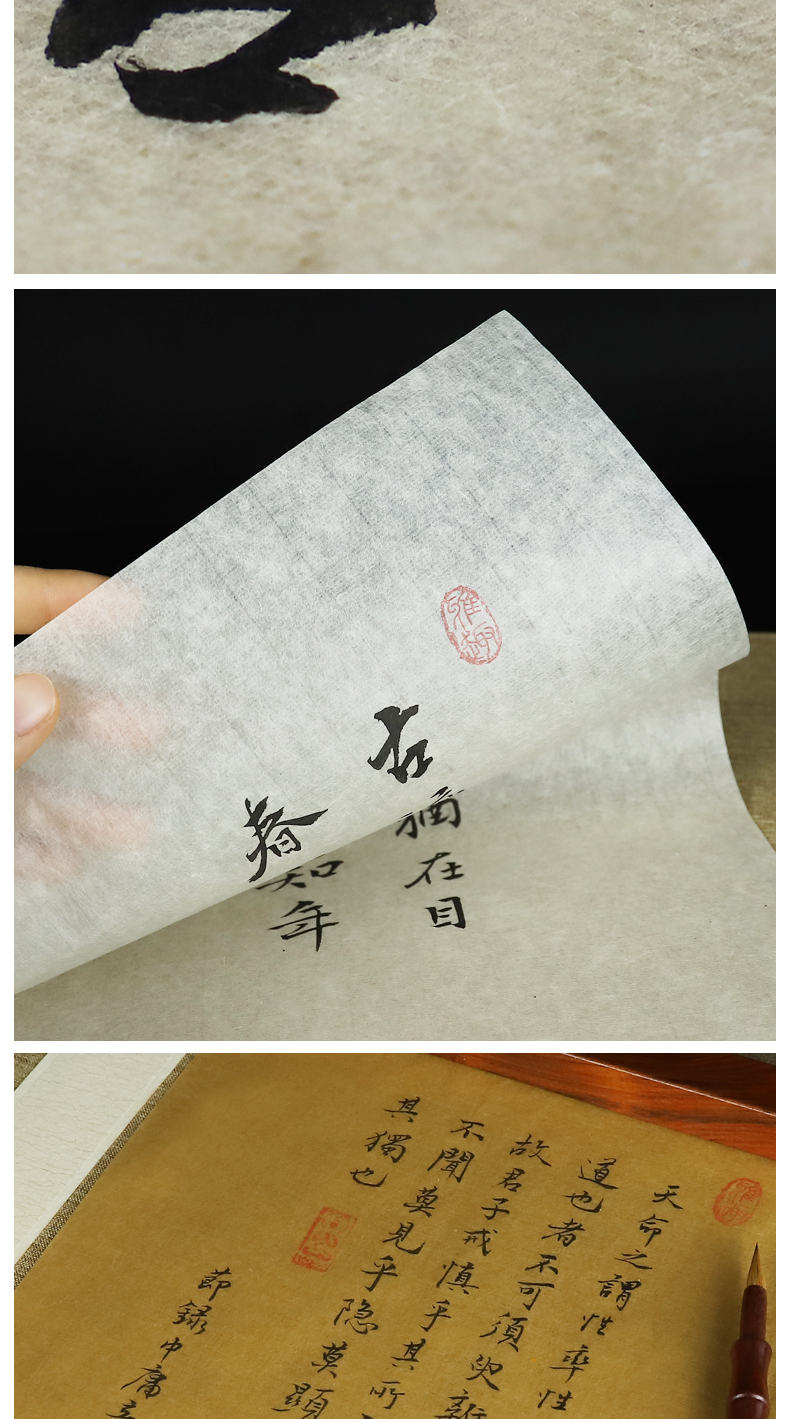 雅趣
古猶在目
春知年
雅趣
天命之謂性率性
道也者不可須臾離
故君子戒慎乎其所
不聞莫見乎隐莫顯
其獨也
節録中庸